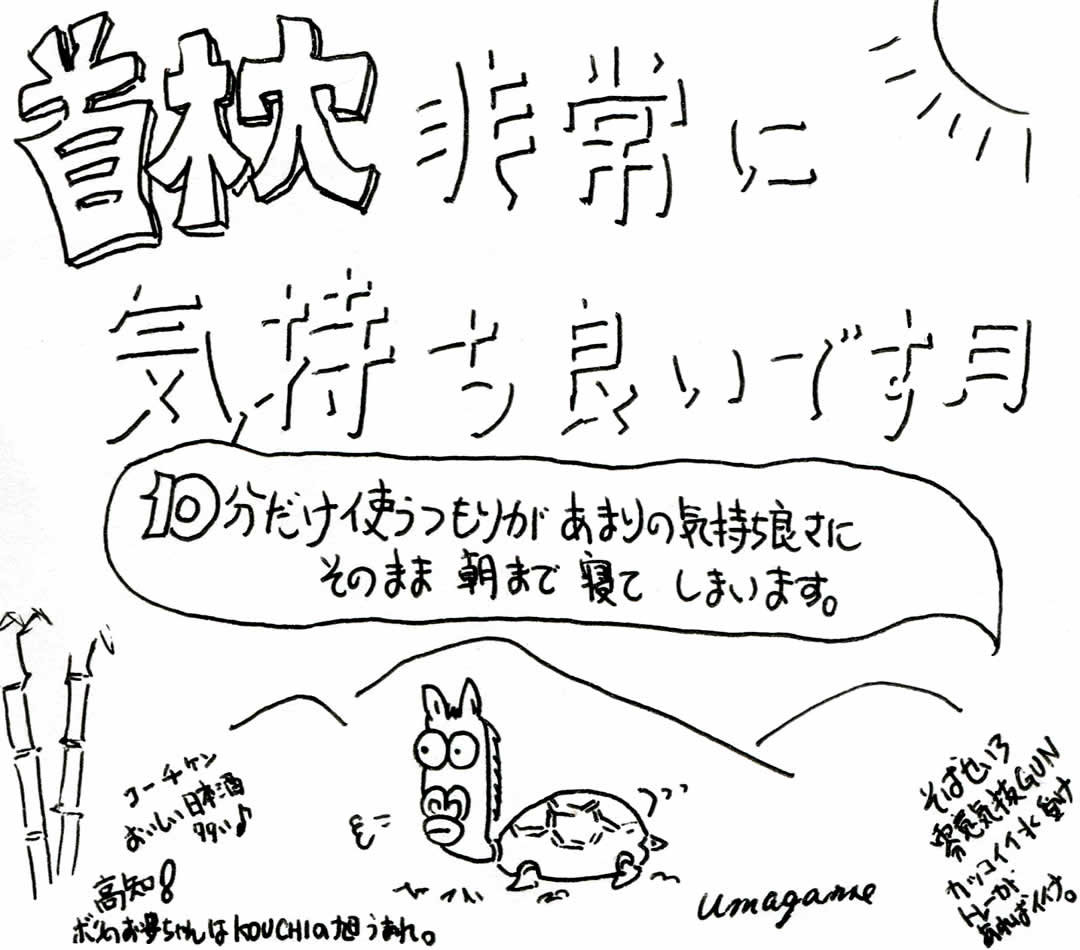 首枕 非常に
気持ち良いです月
10分だけ使うつもりが あまりの気持ち良さに
そのまま 朝まで 寝て しまいます。
コーチケン
おいしい日本酒
タタい♪
高知!
ボクのお婆ちゃんはKOUCHIの旭うまれ。
そばせいろ
雰囲気抜GUN
カッコイイ水受け
トレーが
あればイイナ。
umaganse